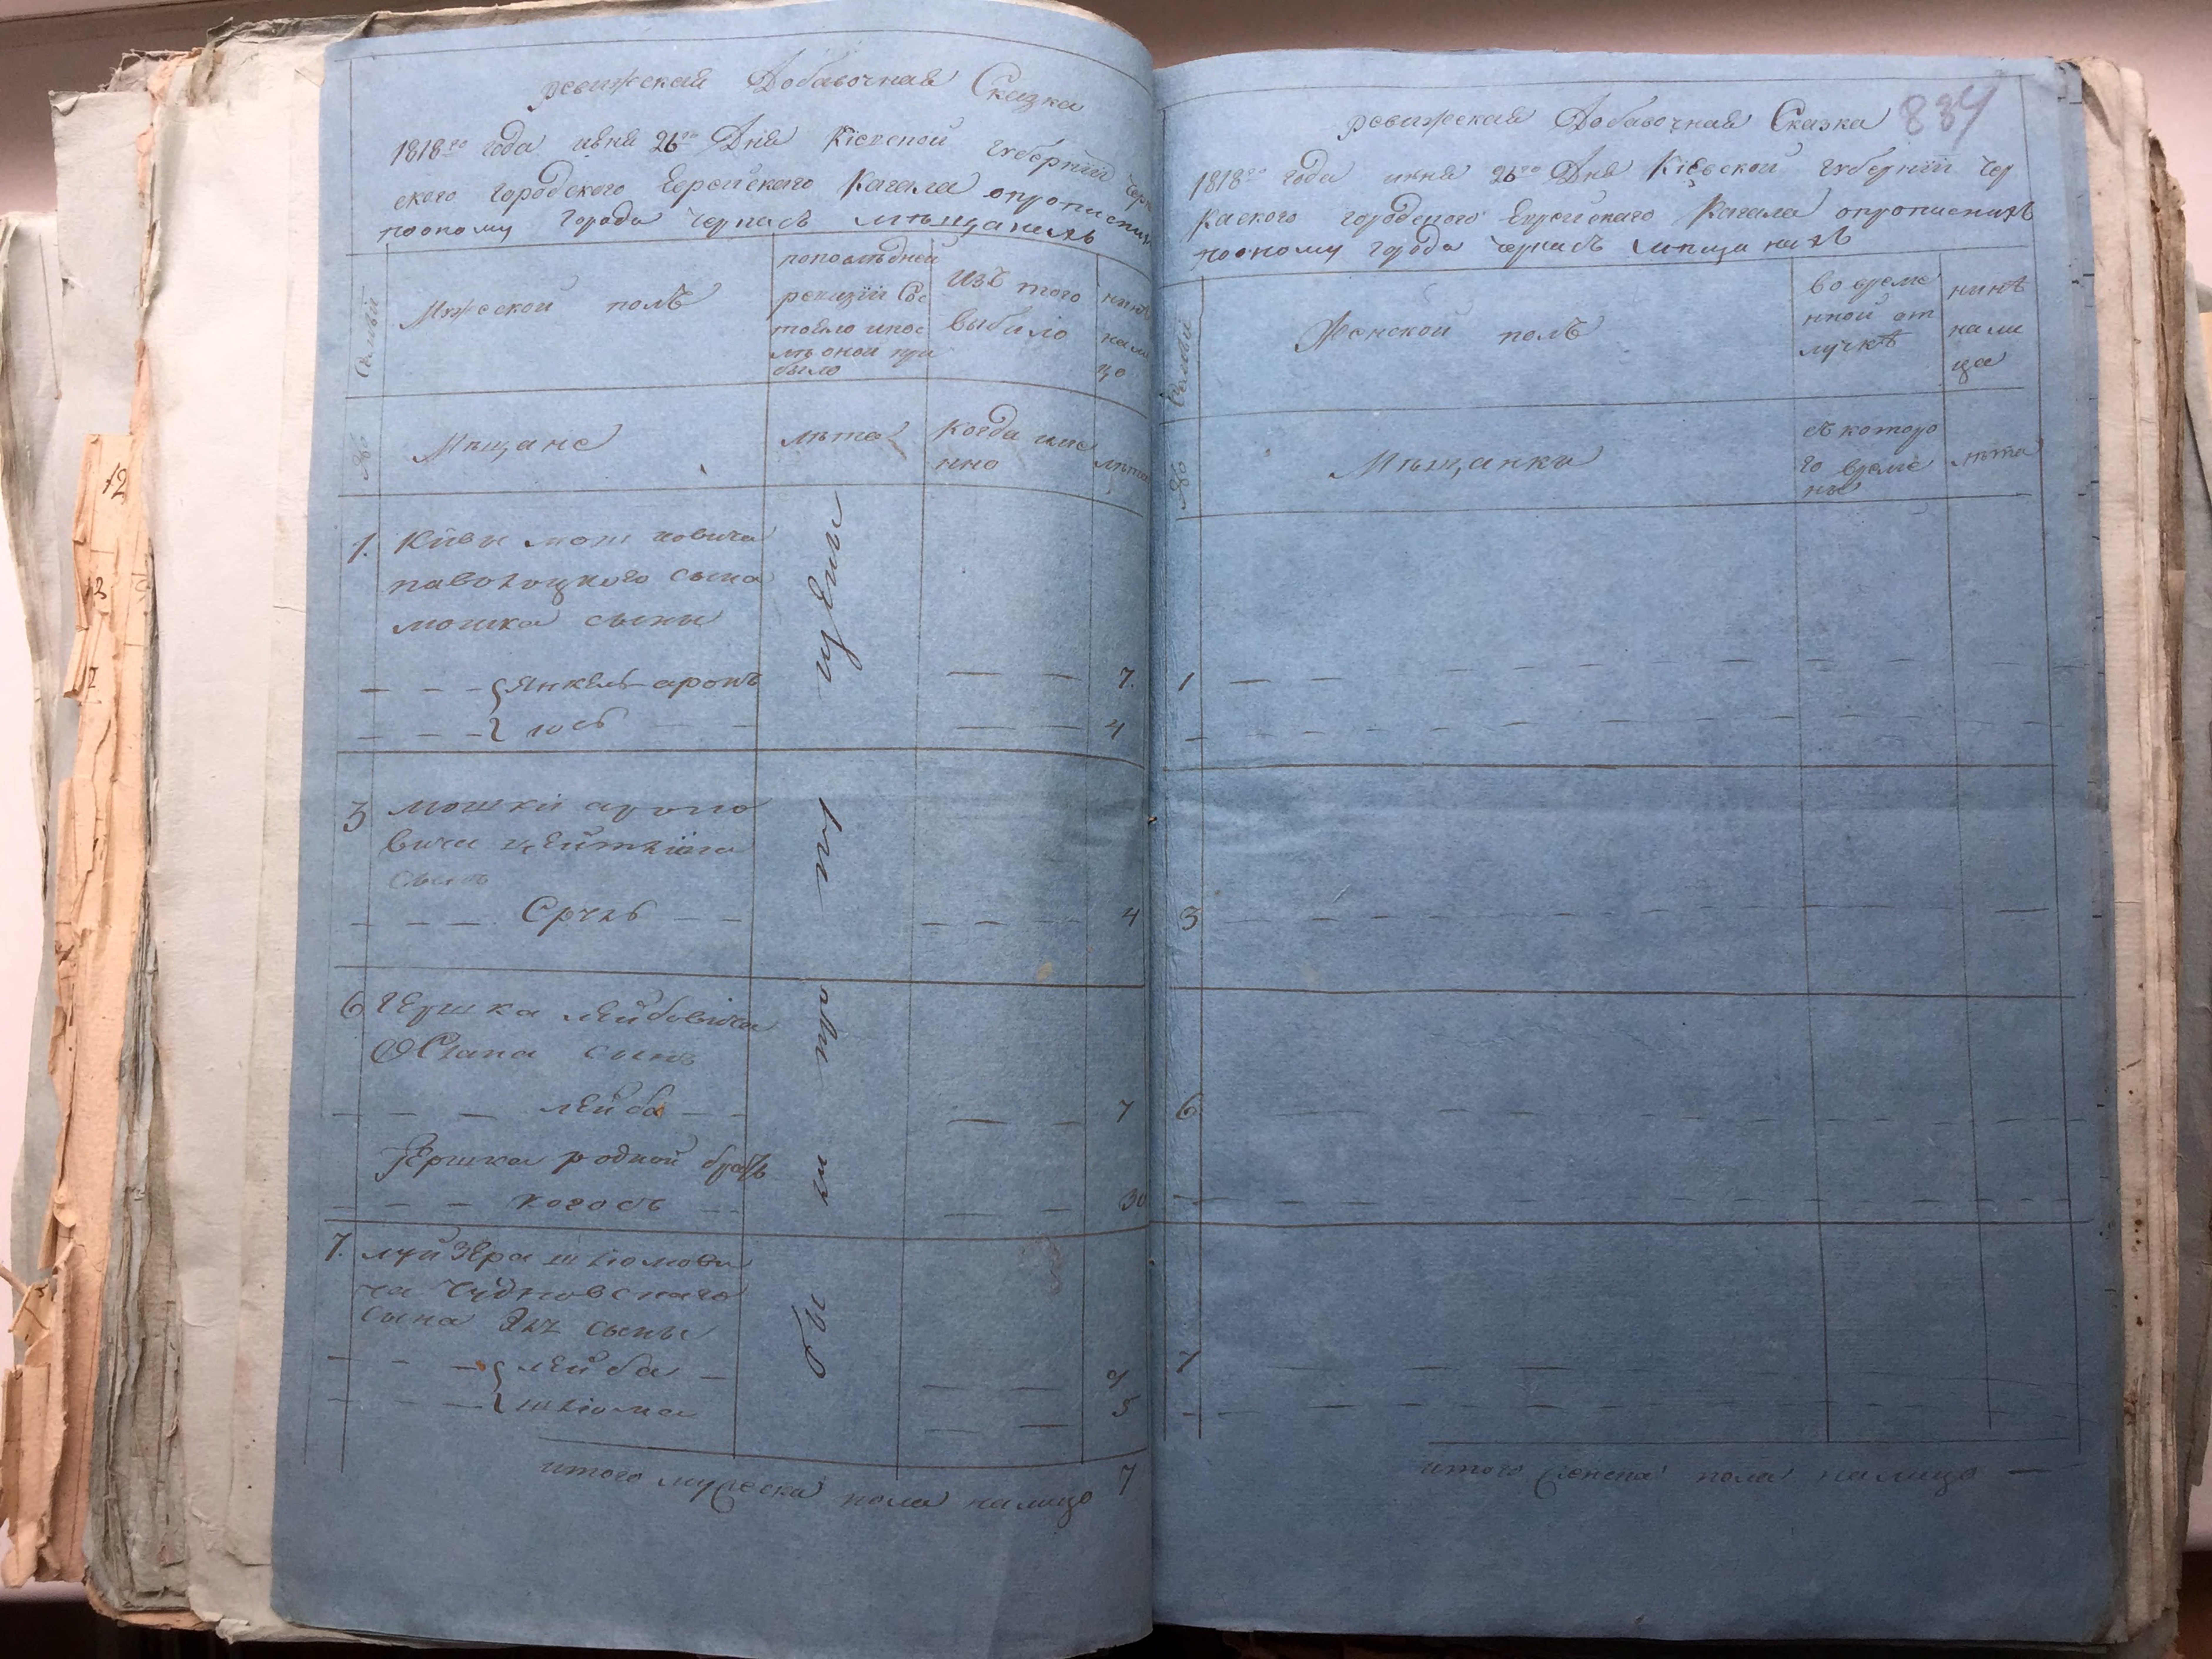 ревижская Добавочная Сказка
1818го года июня 26го Дня Кіевской губерніи Чер
ского городского Еврейского Кагала о прописних
по оному города Черкасъ мѣщанехъ
№ Семьи
Мужеской полъ
по последней
ревизіи сос
тояло и пос
лѣ оной при
было
Изъ того
выбыло
нинѣ
на ли
цо
Мѣщане
лѣта
Когда име
нно
лѣта
1. Кивы мошковича
паволоцкого сына
мошка сыны
Янкель аронъ 7.
іось 4
3 мошки ароно
вича цейтліна
сынъ
Сруль 4
6 Гершка лейбовича
сынъ
лейба 7
Гершка родной братъ
когосъ 30
7. луйзера шліомови
ча Чудновского
сына сыны
лейба 9
шліома 5
были пропущены
итого мужеска пола на лицо 7
ревижская Добавочная Сказка
834
1818го года июня 26го Дня Кіевской губерніи Чер
каского городского Еврейского Кагала о прописнихъ
по оному города Черкасъ мѣщанехъ
№ Семьи
Женской полъ
во време
нной от
лучкѣ
нинѣ
на ли
цо
Мѣщанки
съ которо
го време
ни
лѣта
1
3
6
7
итого женска пола на лицо —